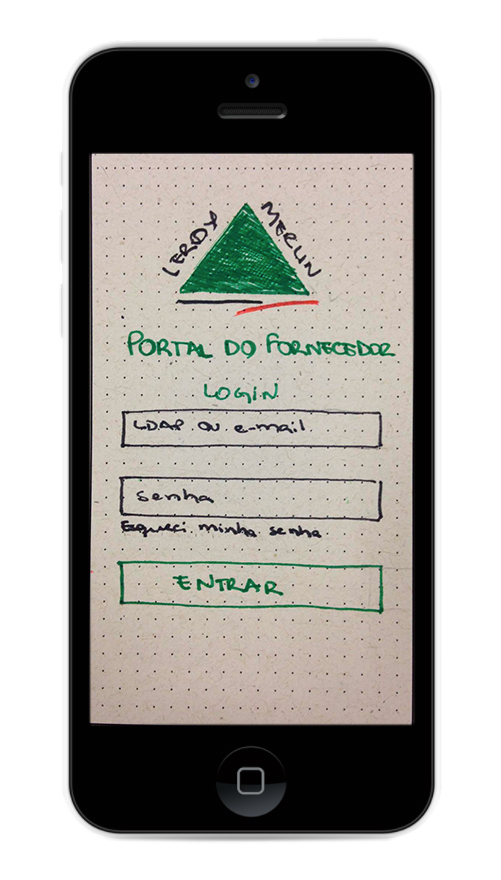 LEROY MERLIN
PORTAL DO FORNECEDOR
LOGIN
LDAP OU e-mail
Senha
Esqueci minha senha
ENTRAR